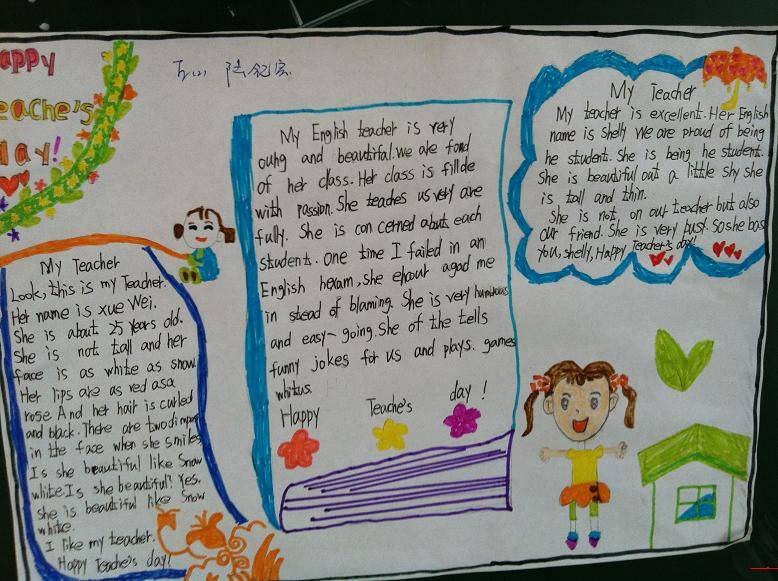 appy
eache's
day!
My Teacher
Look, this is my Teacher.
Her name is xue Wei.
She is about 25 years old.
She is not tall and her
face is as white as snow
Her lips are as red asa
rose And her hair is curled
and black. There are two dimper
in the face when she smiles
Is she beautiful like Snow
white. Is she beautiful? Yes.
she is beautiful like Snow
white.
I like my teacher.
Happy Teache's day!
My English teacher is very
oung and beautiful. we are fond
of her class. Her class is fillde
with passion. She teaches us very are
fully. She is con cerned about each
student. One time I failed in an
English hexam, she agad me
in stead of blaming. She is very humorous
and easy-going. She of the tells
funny jokes for us and plays. games
whitus.
Happy Teache's day!
My Teacher
My teacher is excellent. Her English
name is Shelly We are proud of being
he student. She is being he student.
She is beautiful out a little shy she
is tall and thin.
She is not, on our teacher but also
our friend. She is very busy. So she bas
you, shelly, Happy Teacher's day!